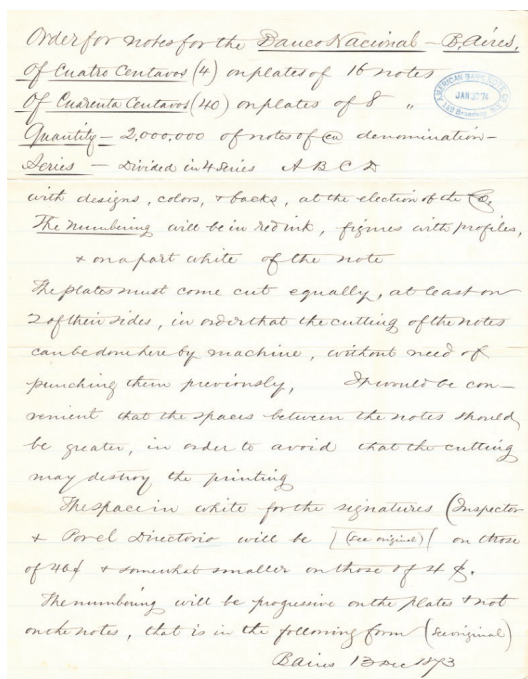 Order for notes for the Banco Nacional — B. Aires.
Of Cuatro Centavos (4) on plates of 16 notes
Of Cuarenta Centavos (40) on plates of 8 "
AMERICAN BANK NOTE CO.
JAN 1874
142 Broadway
Quantity — 2,000,000 of notes of ea denomination —
Series — Divided in 4 Series A B C D
with designs, colors, & backs, at the election of the Co.
The numbering will be in red ink, figures with profiles,
& on a part white of the note
The plates must come cut equally, at least on
2 of their sides, in order that the cutting of the notes
can be done here by machine, without need of
punching them previously, It would be con-
venient that the spaces between the notes should
be greater, in order to avoid that the cutting
may destroy the printing
The space in white for the signatures (Inspector
& Por el Directorio will be | (see original) | on those
of 40¢ & somewhat smaller on those of 4 ¢.
The numbering will be progressive on the plates & not
on the notes, that is in the following form (see original)
BAires 13 Dec 1873